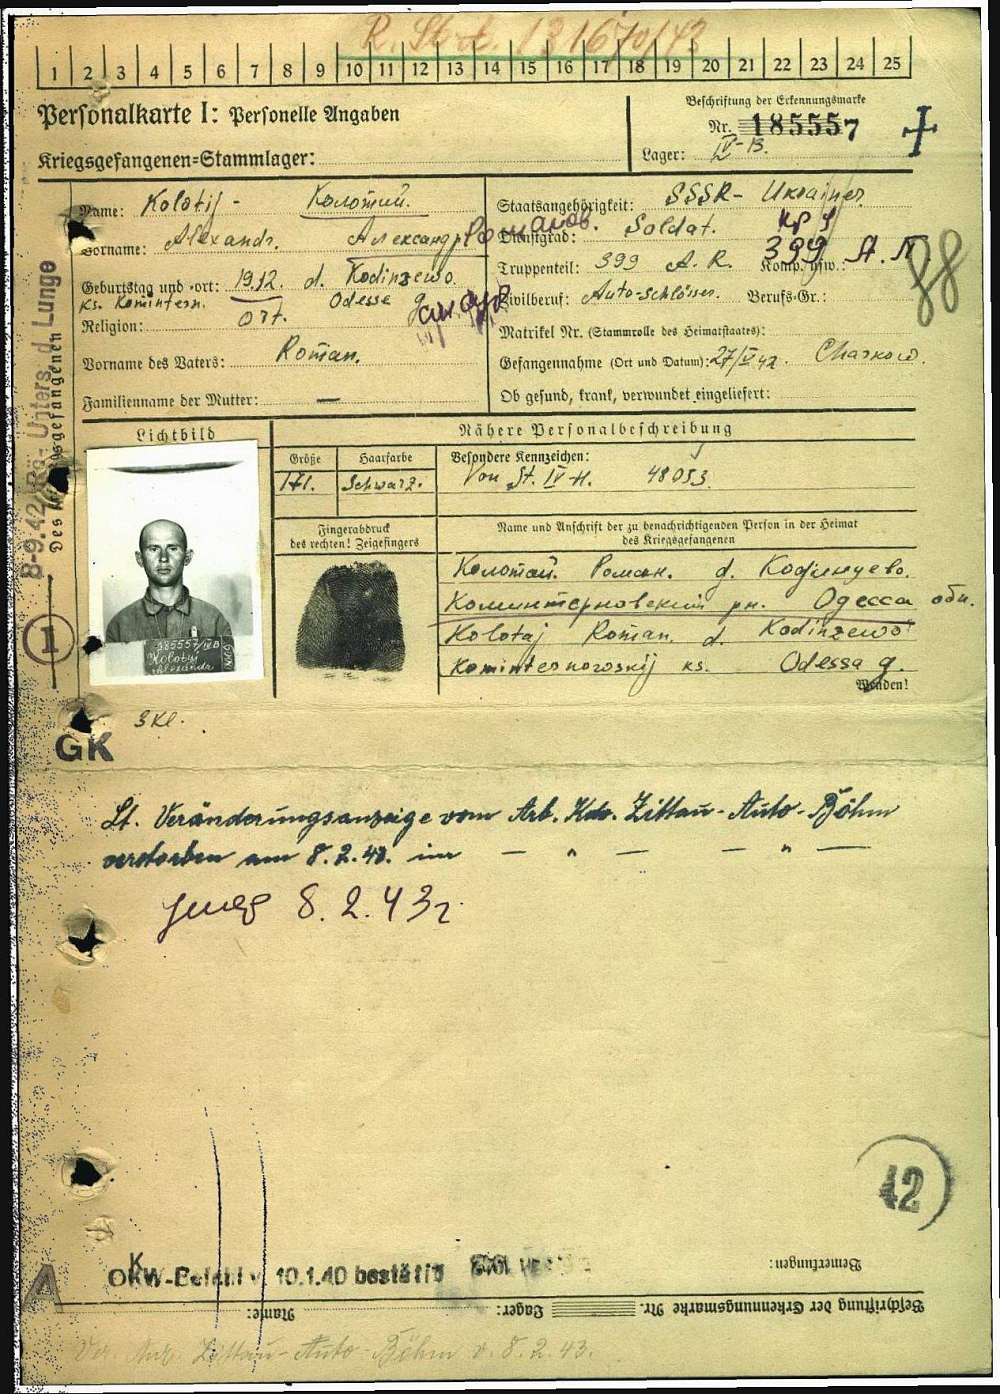 R. St. 131670/43
1 2 3 4 5 6 7 8 9 10 11 12 13 14 15 16 17 18 19 20 21 22 23 24 25
Personalkarte I: Personelle Angaben
Kriegsgefangenen=Stammlager:
Beschriftung der Erkennungsmarke
Nr. 185557
Lager: IV-B.
Name: Kolotij - Колотий.
Vorname: Alexandr. Александр Романов.
Geburtstag und =ort: 1912. d. Kodinzewo
ks. Komintern. Odessa g.
Religion: Ort.
Vorname des Vaters: Roman.
Familienname der Mutter: —
Staatsangehörigkeit: SSSR- Ukrainer
Dienstgrad: Soldat. кр
Truppenteil: 399 A. R. Komp. usw.: 399 А. П
Zivilberuf: Auto-Schlosser. Berufs=Gr.:
88
Matrikel Nr. (Stammrolle des Heimatstaates):
Gefangennahme (Ort und Datum): 27/V 42. Charkow.
Ob gesund, krank, verwundet eingeliefert:
8-9.42 Rö- Unters. d. Lunge
Des Kriegsgefangenen
1
Lichtbild
185557/IVB
Kolotij
Alexandr
Nähere Personalbeschreibung
Größe Haarfarbe Besondere Kennzeichen:
171. Schwarz. Von St. IV-H. 48053
Fingerabdruck
des rechten! Zeigefingers
Name und Anschrift der zu benachrichtigenden Person in der Heimat
des Kriegsgefangenen
Колотай. Роман. д. Кодинцево.
Коминтерновский рн. Одесса обл.
Kolotaj Roman. d. Kodinzewo
Kominternowskij ks. Odessa g.
Wenden!
3 Kl.
GK
Lt. Veränderungsanzeige vom Arb. Kdo. Zittau-Auto-Böhm
verstorben am 8.2.43. im — " — — " —
умер 8.2.43г
42
OKW-Befehl v. 10.1.40 bestätig
Bemerkungen:
Beschriftung der Erkennungsmarke Nr. Lager:
Name:
A
Ver. Anz. Zittau-Auto-Böhm v. 8.2.43.